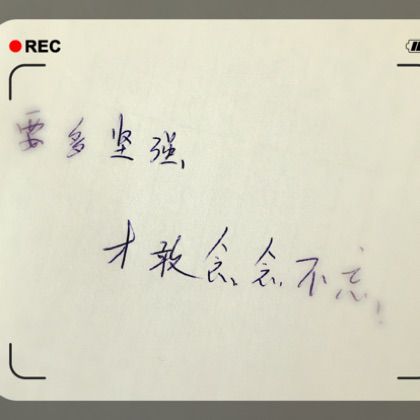 REC
要多坚强,
才敢念念不忘!